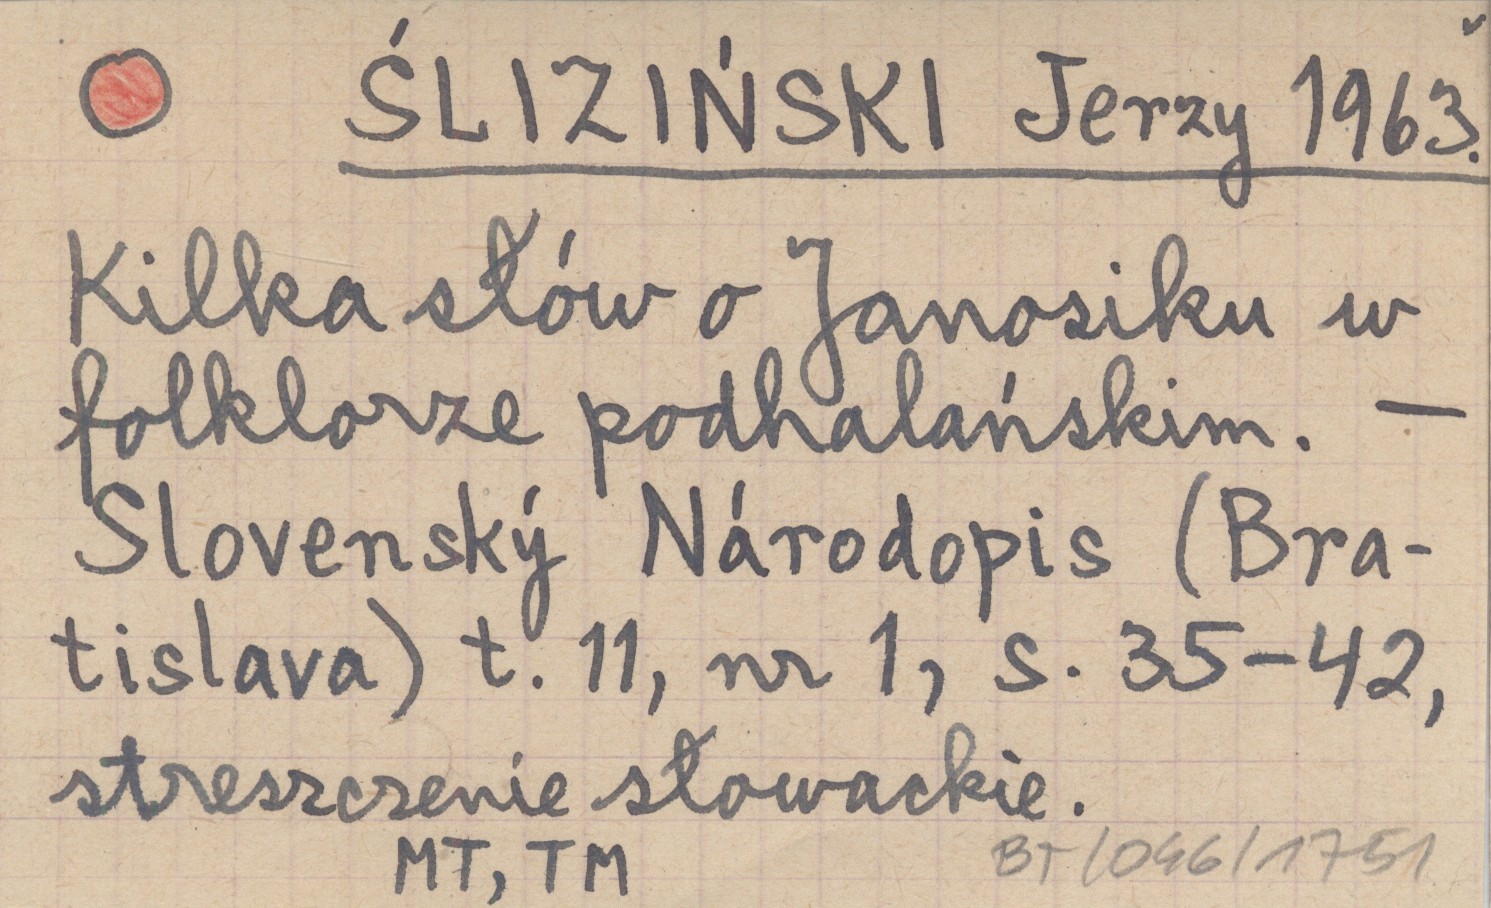 ŚLIZIŃSKI Jerzy 1963.
Kilka słów o Janosiku w
folklorze podhalańskim. —
Slovenský Národopis (Bra-
tislava) t. 11, nr 1, s. 35-42,
streszczenie słowackie.
MT, TM
BT/046/1751